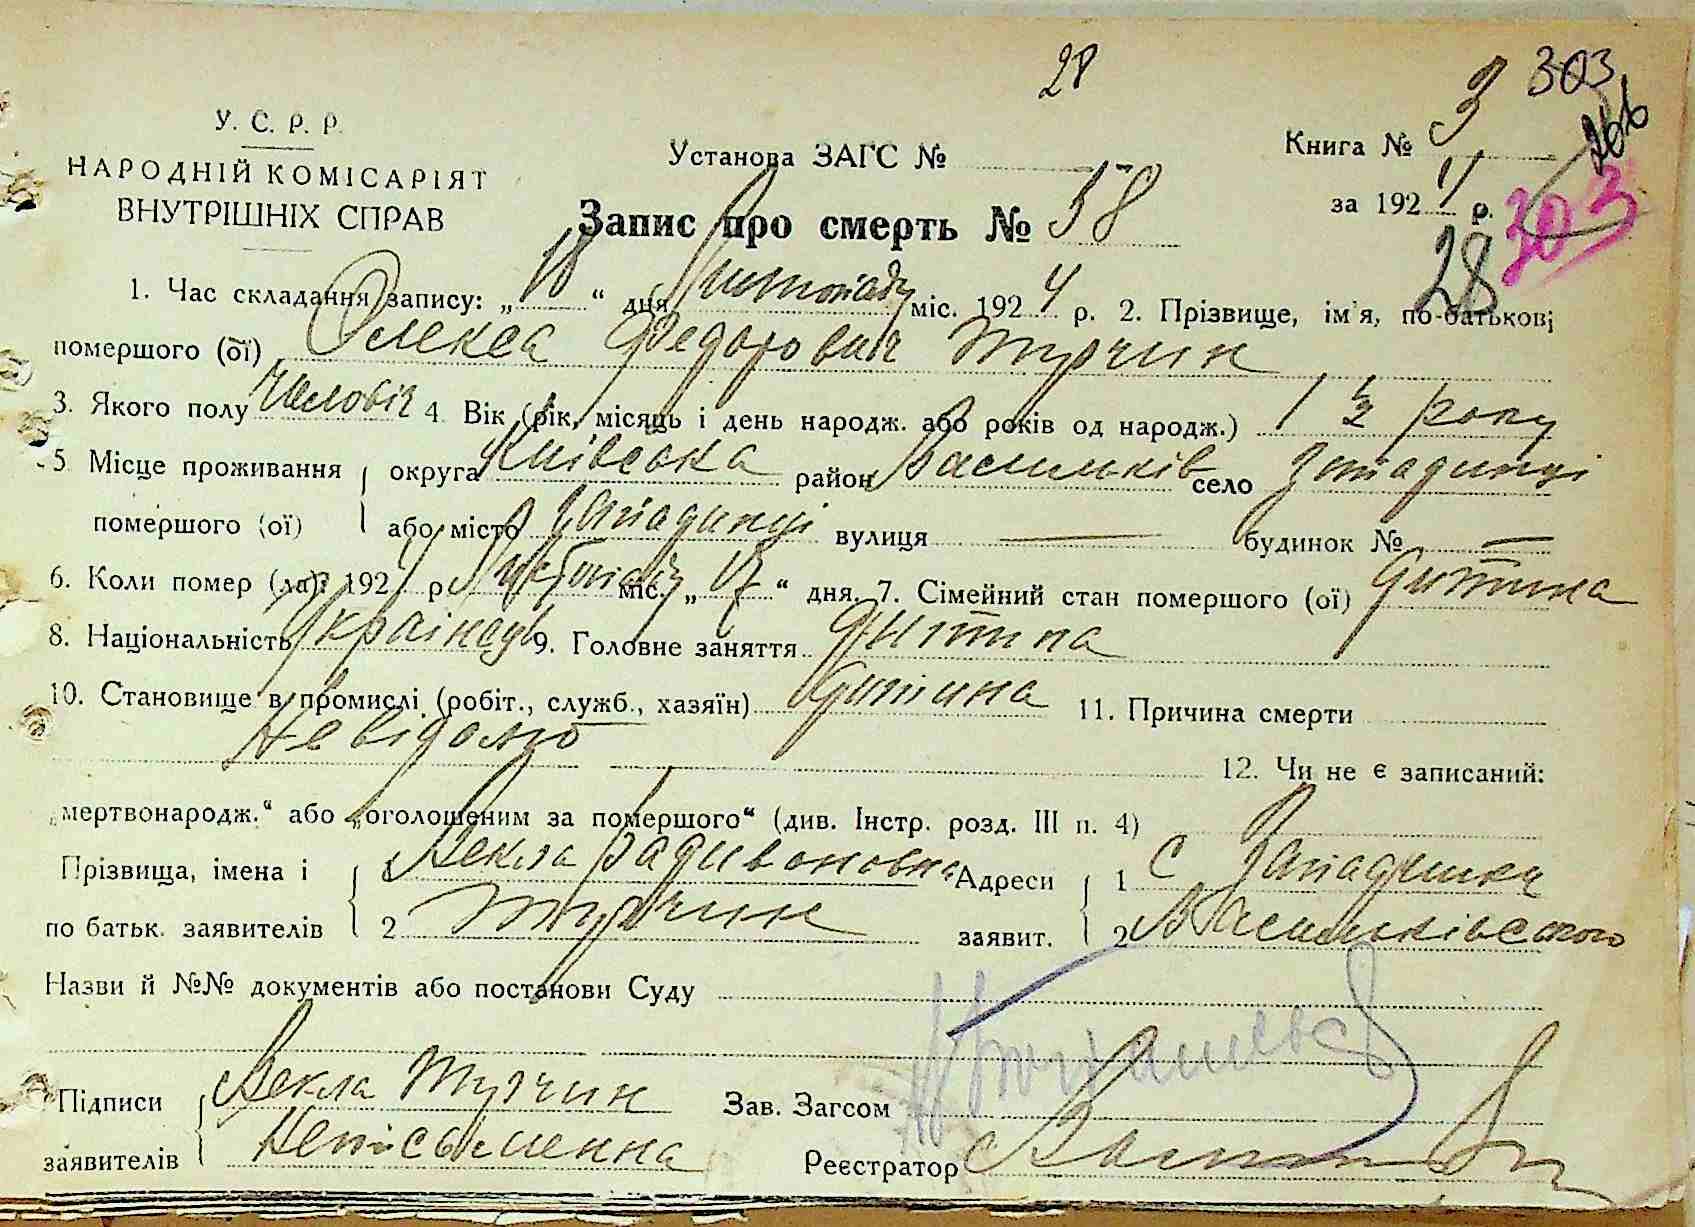 28
3 303
266
У. С. Р. Р.
НАРОДНІЙ КОМІСАРІЯТ
ВНУТРІШНІХ СПРАВ
Установа ЗАГС №
Книга №
за 1924 р. 303
Запис про смерть № 58
28
1. Час складання запису: „18“ дня Листопаду міс. 1924 р. 2. Прізвище, ім'я, по-батькові
помершого (ої) Олекса Федорович Турчин
3. Якого полу чоловіч 4. Вік (рік, місяць і день народж. або років од народж.) 1 ½ року
5 Місце проживання округа Київська район Васильків село Западинці
помершого (ої) або місто Западинці вулиця — будинок № —
6. Коли помер (ла): 1924 р Листопаду міс. „17“ дня. 7. Сімейний стан помершого (ої) дитина
8. Національність Українець 9. Головне заняття дитина
10. Становище в промислі (робіт., служб., хазяїн) дитина 11. Причина смерти
Невідомо
12. Чи не є записаний:
„мертвонародж.“ або „оголошеним за помершого“ (див. Інстр. розд. III п. 4)
Прізвища, імена і 1 Текла Радивоновна Адреси 1 с Западинки
по батьк. заявителів 2 Турчин заявит. 2 Васильківського
Назви й №№ документів або постанови Суду
Підписи Текла Турчин Зав. Загсом
заявителів Неписьменна Реєстратор